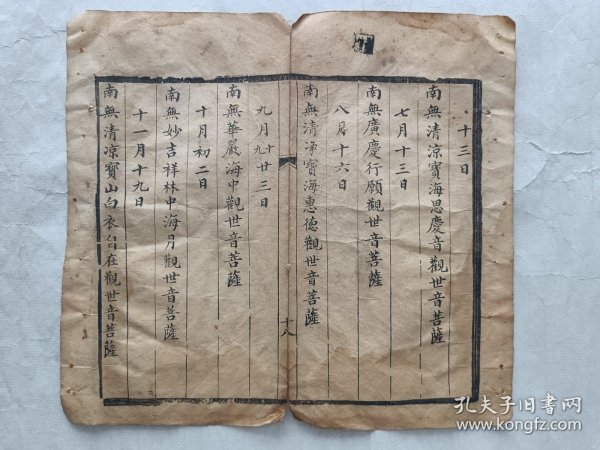 十三日
南無清凉寳海思慶音觀世音菩薩
七月十三日
南無廣慶行願觀世音菩薩
八月十六日
南無清净寳海惠德觀世音菩薩
十八
九月十九廿三日
南無華嚴海中觀世音菩薩
十月初二日
南無妙吉祥林中海月觀世音菩薩
十一月十九日
南無清凉寳山白衣自在觀世音菩薩
孔夫子旧书网
www.kongfz.com